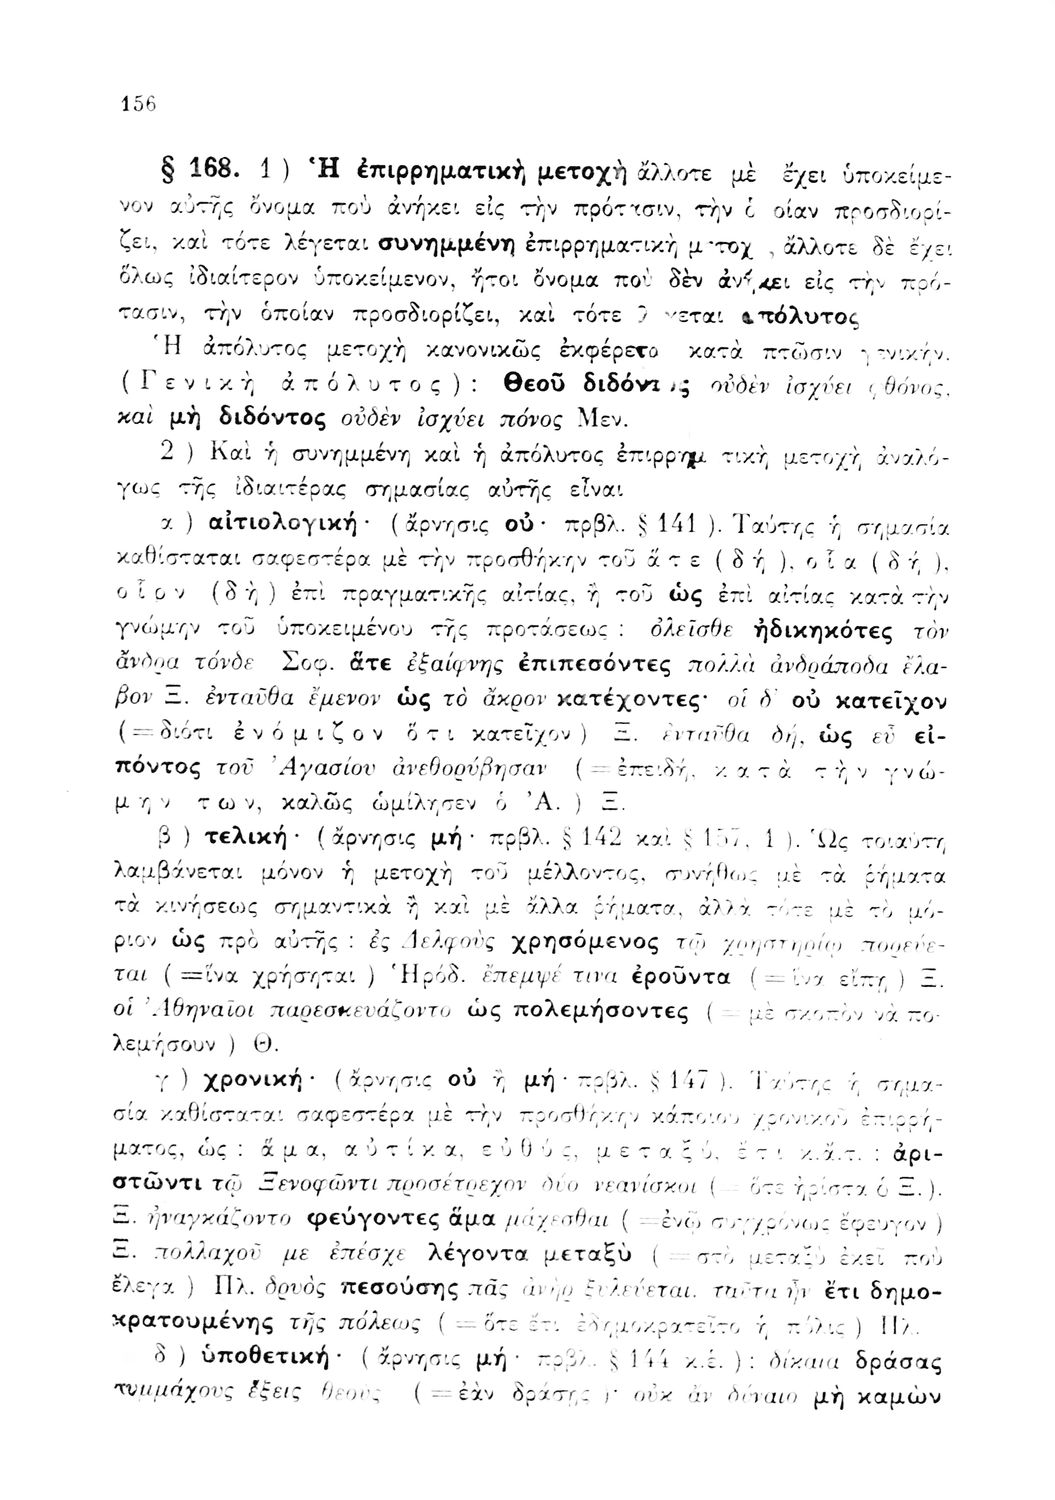 156
§ 168. 1 ) Ἡ ἐπιρρηματικὴ μετοχὴ ἄλλοτε μὲ ἔχει ὑποκείμε-
νον αὐτῆς ὄνομα ποὺ ἀνήκει εἰς τὴν πρότασιν, τὴν ὁποίαν προσδιορί-
ζει, καὶ τότε λέγεται συνημμένη ἐπιρρηματικὴ μετοχή, ἄλλοτε δὲ ἔχει
ὅλως ἰδιαίτερον ὑποκείμενον, ἤτοι ὄνομα ποὺ δὲν ἀνήκει εἰς τὴν πρό-
τασιν, τὴν ὁποίαν προσδιορίζει, καὶ τότε λέγεται ἀπόλυτος
Ἡ ἀπόλυτος μετοχὴ κανονικῶς ἐκφέρετα κατὰ πτῶσιν γενικήν.
( Γ ε ν ι κ ὴ ἀ π ό λ υ τ ο ς ) : Θεοῦ διδόντος οὐδὲν ἰσχύει φθόνος,
καὶ μὴ διδόντος οὐδὲν ἰσχύει πόνος Μεν.
2 ) Καὶ ἡ συνημμένη καὶ ἡ ἀπόλυτος ἐπιρρηματικὴ μετοχὴ ἀναλό-
γως τῆς ἰδιαιτέρας σημασίας αὐτῆς εἶναι
α ) αἰτιολογική· ( ἄρνησις οὐ· πρβλ. § 141 ). Ταύτης ἡ σημασία
καθίσταται σαφεστέρα μὲ τὴν προσθήκην τοῦ ἅ τ ε ( δ ή ), ο ἷ α ( δ ή ),
ο ἷ ο ν ( δ ὴ ) ἐπὶ πραγματικῆς αἰτίας, ἢ τοῦ ὡς ἐπὶ αἰτίας κατὰ τὴν
γνώμην τοῦ ὑποκειμένου τῆς προτάσεως : ὀλεῖσθε ἠδικηκότες τὸν
ἄνδρα τόνδε Σοφ. ἅτε ἐξαίφνης ἐπιπεσόντες πολλὰ ἀνδράποδα ἔλα-
βον Ξ. ἐνταῦθα ἔμενον ὡς τὸ ἄκρον κατέχοντες· οἱ δ' οὐ κατεῖχον
( = διότι ἐ ν ό μ ι ζ ο ν ὅ τ ι κατεῖχον ) Ξ. ἐνταῦθα δή, ὡς εὖ εἰ-
πόντος τοῦ Ἀγασίου ἀνεθορύβησαν ( = ἐπειδή, κ α τ ὰ τ ὴ ν γ ν ώ-
μ η ν τ ω ν, καλῶς ὡμίλησεν ὁ Ἀ. ) Ξ.
β ) τελική· ( ἄρνησις μή· πρβλ. § 142 καὶ § 157, 1 ). Ὡς τοιαύτη
λαμβάνεται μόνον ἡ μετοχὴ τοῦ μέλλοντος, συνήθως μὲ τὰ ρήματα
τὰ κινήσεως σημαντικὰ ἢ καὶ μὲ ἄλλα ρήματα, ἀλλὰ τότε μὲ τὸ μό-
ριον ὡς πρὸ αὐτῆς : ἐς Δελφοὺς χρησόμενος τῷ χρηστηρίῳ πορεύε-
ται ( =ἵνα χρήσηται ) Ἡρόδ. ἔπεμψέ τινα ἐροῦντα ( = ἵνα εἴπῃ ) Ξ.
οἱ Ἀθηναῖοι παρεσκευάζοντο ὡς πολεμήσοντες ( = μὲ σκοπὸν νὰ πο-
λεμήσουν ) Θ.
γ ) χρονική· ( ἄρνησις οὐ ἢ μή· πρβλ. § 147 ). Ταύτης ἡ σημα-
σία καθίσταται σαφεστέρα μὲ τὴν προσθήκην κάποιου χρονικοῦ ἐπιρρή-
ματος, ὡς : ἅ μ α, α ὐ τ ί κ α, ε ὐ θ ύ ς, μ ε τ α ξ ύ, ἔ τ ι κ.ἄ.τ. : ἀρι-
στῶντι τῷ Ξενοφῶντι προσέτρεχον δύο νεανίσκοι ( = ὅτε ἠρίστα ὁ Ξ.).
Ξ. ἠναγκάζοντο φεύγοντες ἅμα μάχεσθαι ( =ἐνῷ συγχρόνως ἔφευγον )
Ξ. πολλαχοῦ με ἐπέσχε λέγοντα μεταξὺ ( = στὸ μεταξὺ ἐκεῖ ποὺ
ἔλεγα ) Πλ. δρυὸς πεσούσης πᾶς ἀνὴρ ξυλεύεται. ταῦτα ἦν ἔτι δημο-
κρατουμένης τῆς πόλεως ( = ὅτε ἔτι ἐδημοκρατεῖτο ἡ πόλις ) Πλ.
δ ) ὑποθετική· ( ἄρνησις μή· πρβλ. § 144 κ.ἑ. ) : δίκαια δράσας
συμμάχους ἕξεις θεούς ( = ἐὰν δράσῃς )· οὐκ ἂν δύναιο μὴ καμὼν